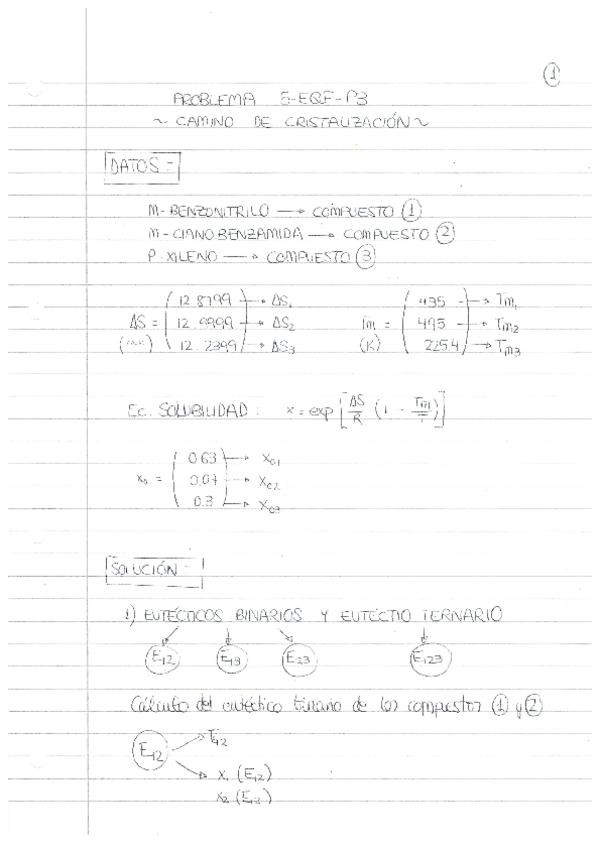 ①
PROBLEMA 5-EQF-P3
~ CAMINO DE CRISTALIZACIÓN ~
DATOS =
M-BENZONITRILO → COMPUESTO ①
M-CIANOBENZAMIDA → COMPUESTO ②
P-XILENO → COMPUESTO ③
ΔS = ( 12.8799 → ΔS₁ Tm = ( 435 → Tm₁
12.9999 → ΔS₂ 495 → Tm₂
12.2399 ) → ΔS₃ (K) 225.4 ) → Tm₃
Ec. SOLUBILIDAD: x = exp [ ΔS/R (1 - Tm/T) ]
x₀ = ( 0.63 → X₀₁
0.07 → X₀₂
0.3 ) → X₀₃
SOLUCIÓN =
1) EUTÉCTICOS BINARIOS Y EUTÉCTIO TERNARIO
E₁₂ E₁₃ E₂₃ E₁₂₃
Cálculo del eutéctico binario de los compuestos ① y ②
E₁₂ → T₁₂
→ X₁ (E₁₂)
X₂ (E₁₂)